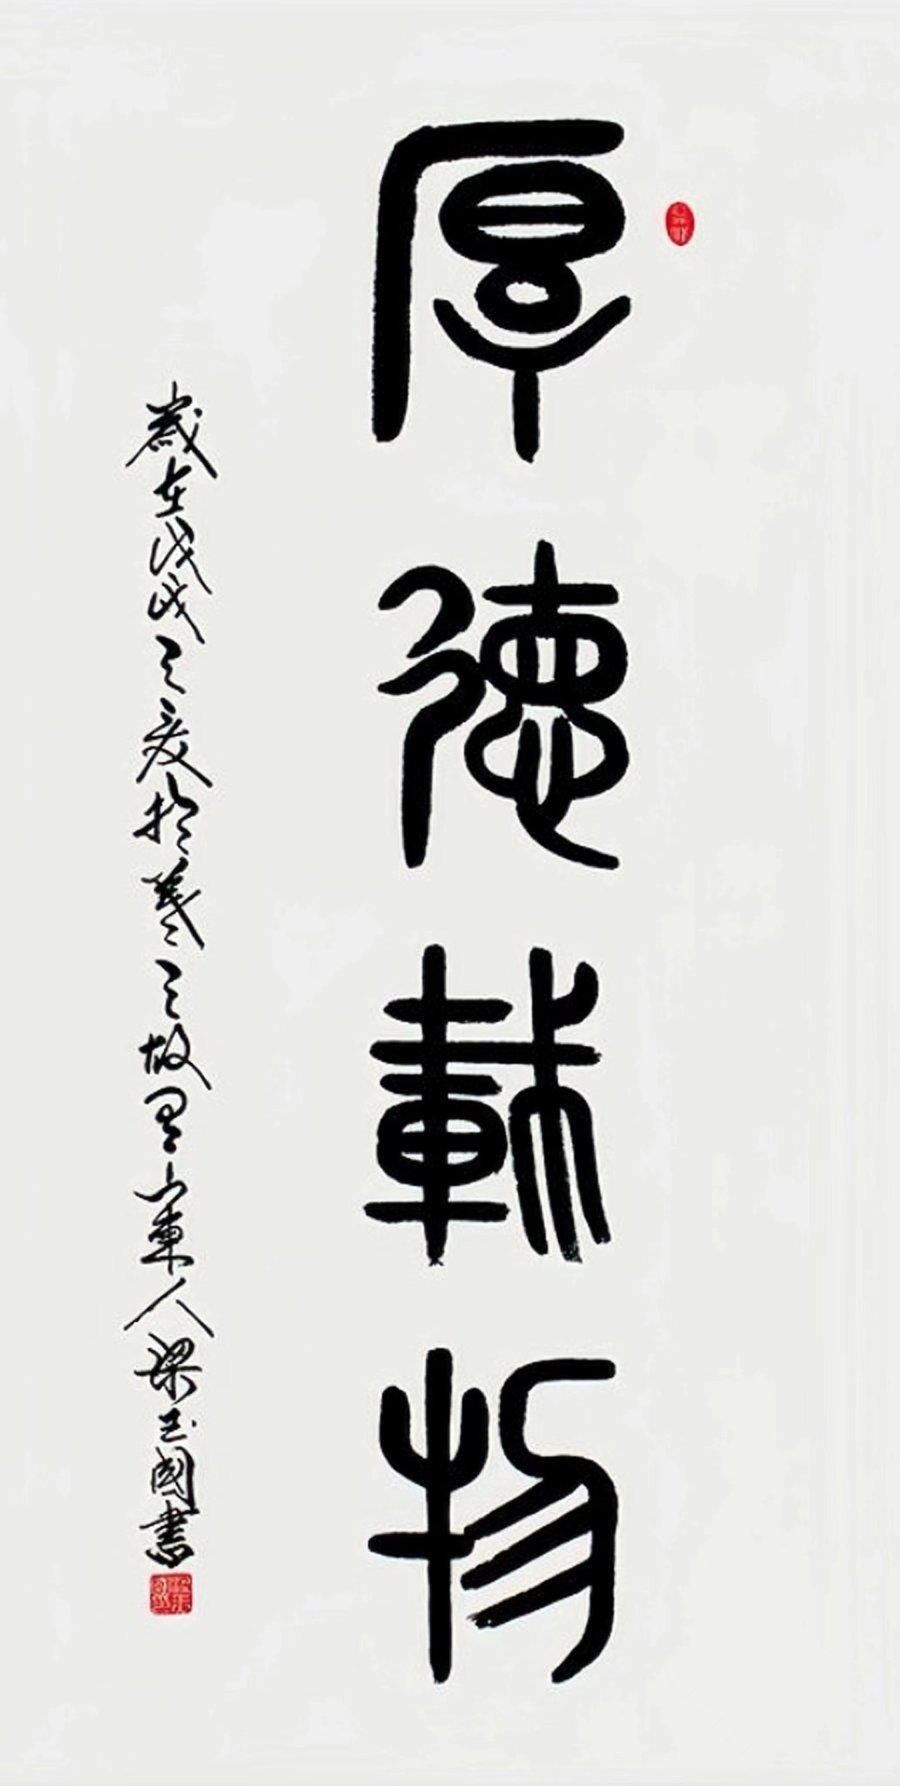 厚德載物
歲在戊戌之夏於羲之故里山東人梁玉國書